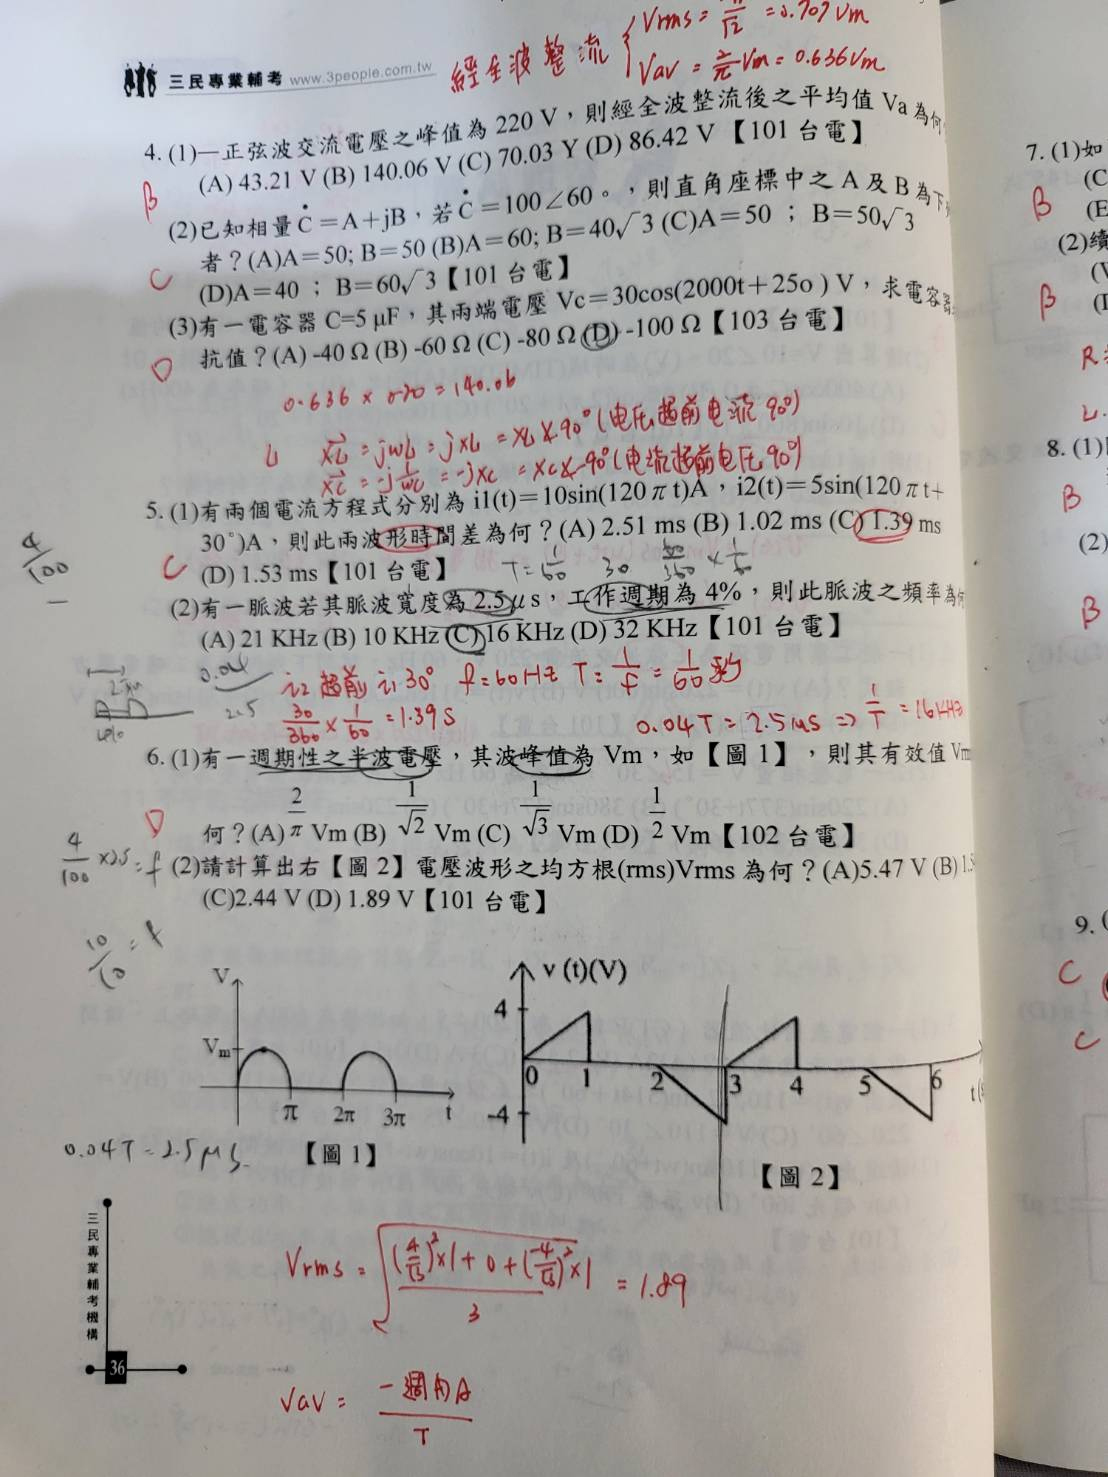 經全波整流 { Vrms = Vm/√2 = 0.707 Vm
Vav = 2/π Vm = 0.636 Vm
三民專業輔考 www.3people.com.tw
4. (1)一正弦波交流電壓之峰值為 220 V,則經全波整流後之平均值 Va 為何
(A) 43.21 V (B) 140.06 V (C) 70.03 Y (D) 86.42 V【101 台電】
B
(2)已知相量 Ċ=A+jB,若 Ċ=100∠60。,則直角座標中之 A 及 B 為下
者?(A)A=50; B=50 (B)A=60; B=40√3 (C)A=50;B=50√3
C
(D)A=40;B=60√3【101 台電】
(3)有一電容器 C=5 μF,其兩端電壓 Vc=30cos(2000t+25o ) V,求電容器
抗值?(A) -40 Ω (B) -60 Ω (C) -80 Ω (D) -100 Ω【103 台電】
D
0.636 × 220 = 140.06
L XL = jωL = jXL = XL∠90°(电压超前电流 90°)
XC = -j 1/ωC = -jXC = XC∠-90°(电流超前电压 90°)
5. (1)有兩個電流方程式分別為 i1(t)=10sin(120πt)A,i2(t)=5sin(120πt+
30°)A,則此兩波形時間差為何?(A) 2.51 ms (B) 1.02 ms (C) 1.39 ms
4/100
C
(D) 1.53 ms【101 台電】
T=1/60 30 30/360 × 1/60
(2)有一脈波若其脈波寬度為 2.5μs,工作週期為 4%,則此脈波之頻率為何
(A) 21 KHz (B) 10 KHz (C) 16 KHz (D) 32 KHz【101 台電】
0.04
2.5
4%
i2 超前 i1 30° f=60Hz T=1/f=1/60 秒
30/360 × 1/60 = 1.39 S
0.04T = 2.5 us ⇒ 1/T = 16 KHz
6. (1)有一週期性之半波電壓,其波峰值為 Vm,如【圖 1】,則其有效值 Vm
D
何?(A) 2/π Vm (B) 1/√2 Vm (C) 1/√3 Vm (D) 1/2 Vm【102 台電】
4/100 ×2.5 = f
(2)請計算出右【圖 2】電壓波形之均方根(rms)Vrms 為何?(A)5.47 V (B)
(C)2.44 V (D) 1.89 V【101 台電】
V
Vm
π 2π 3π t
【圖 1】
v (t)(V)
4
0 1 2 3 4 5 6 t
-4
【圖 2】
0.04T = 2.5 μs
Vrms = √(((4/√3)²×1 + 0 + (-4/√3)²×1)/3) = 1.89
Vav = 一週內A/T
三民專業輔考機構
36
7. (1)如
B
(C
(E
(2)續
(V
B
8. (1)
B
(2)
B
9. (
C
C